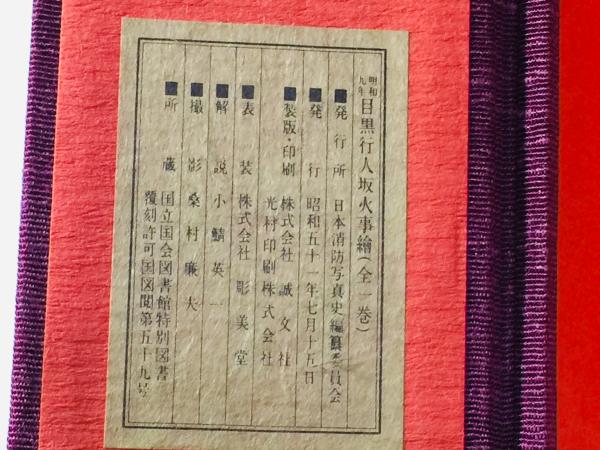 明和九年 目黒行人坂火事繪(全一巻)
■発行所 日本消防写真史編纂委員会
■発行 昭和五十一年七月十五日
■製版・印刷 株式会社 誠文社
光村印刷株式会社
■表装 株式会社 彫美堂
■解説 小鯖英一
■撮影 桑村廉夫
■所蔵 国立国会図書館特別図書
覆刻許可国図閲第五十九号